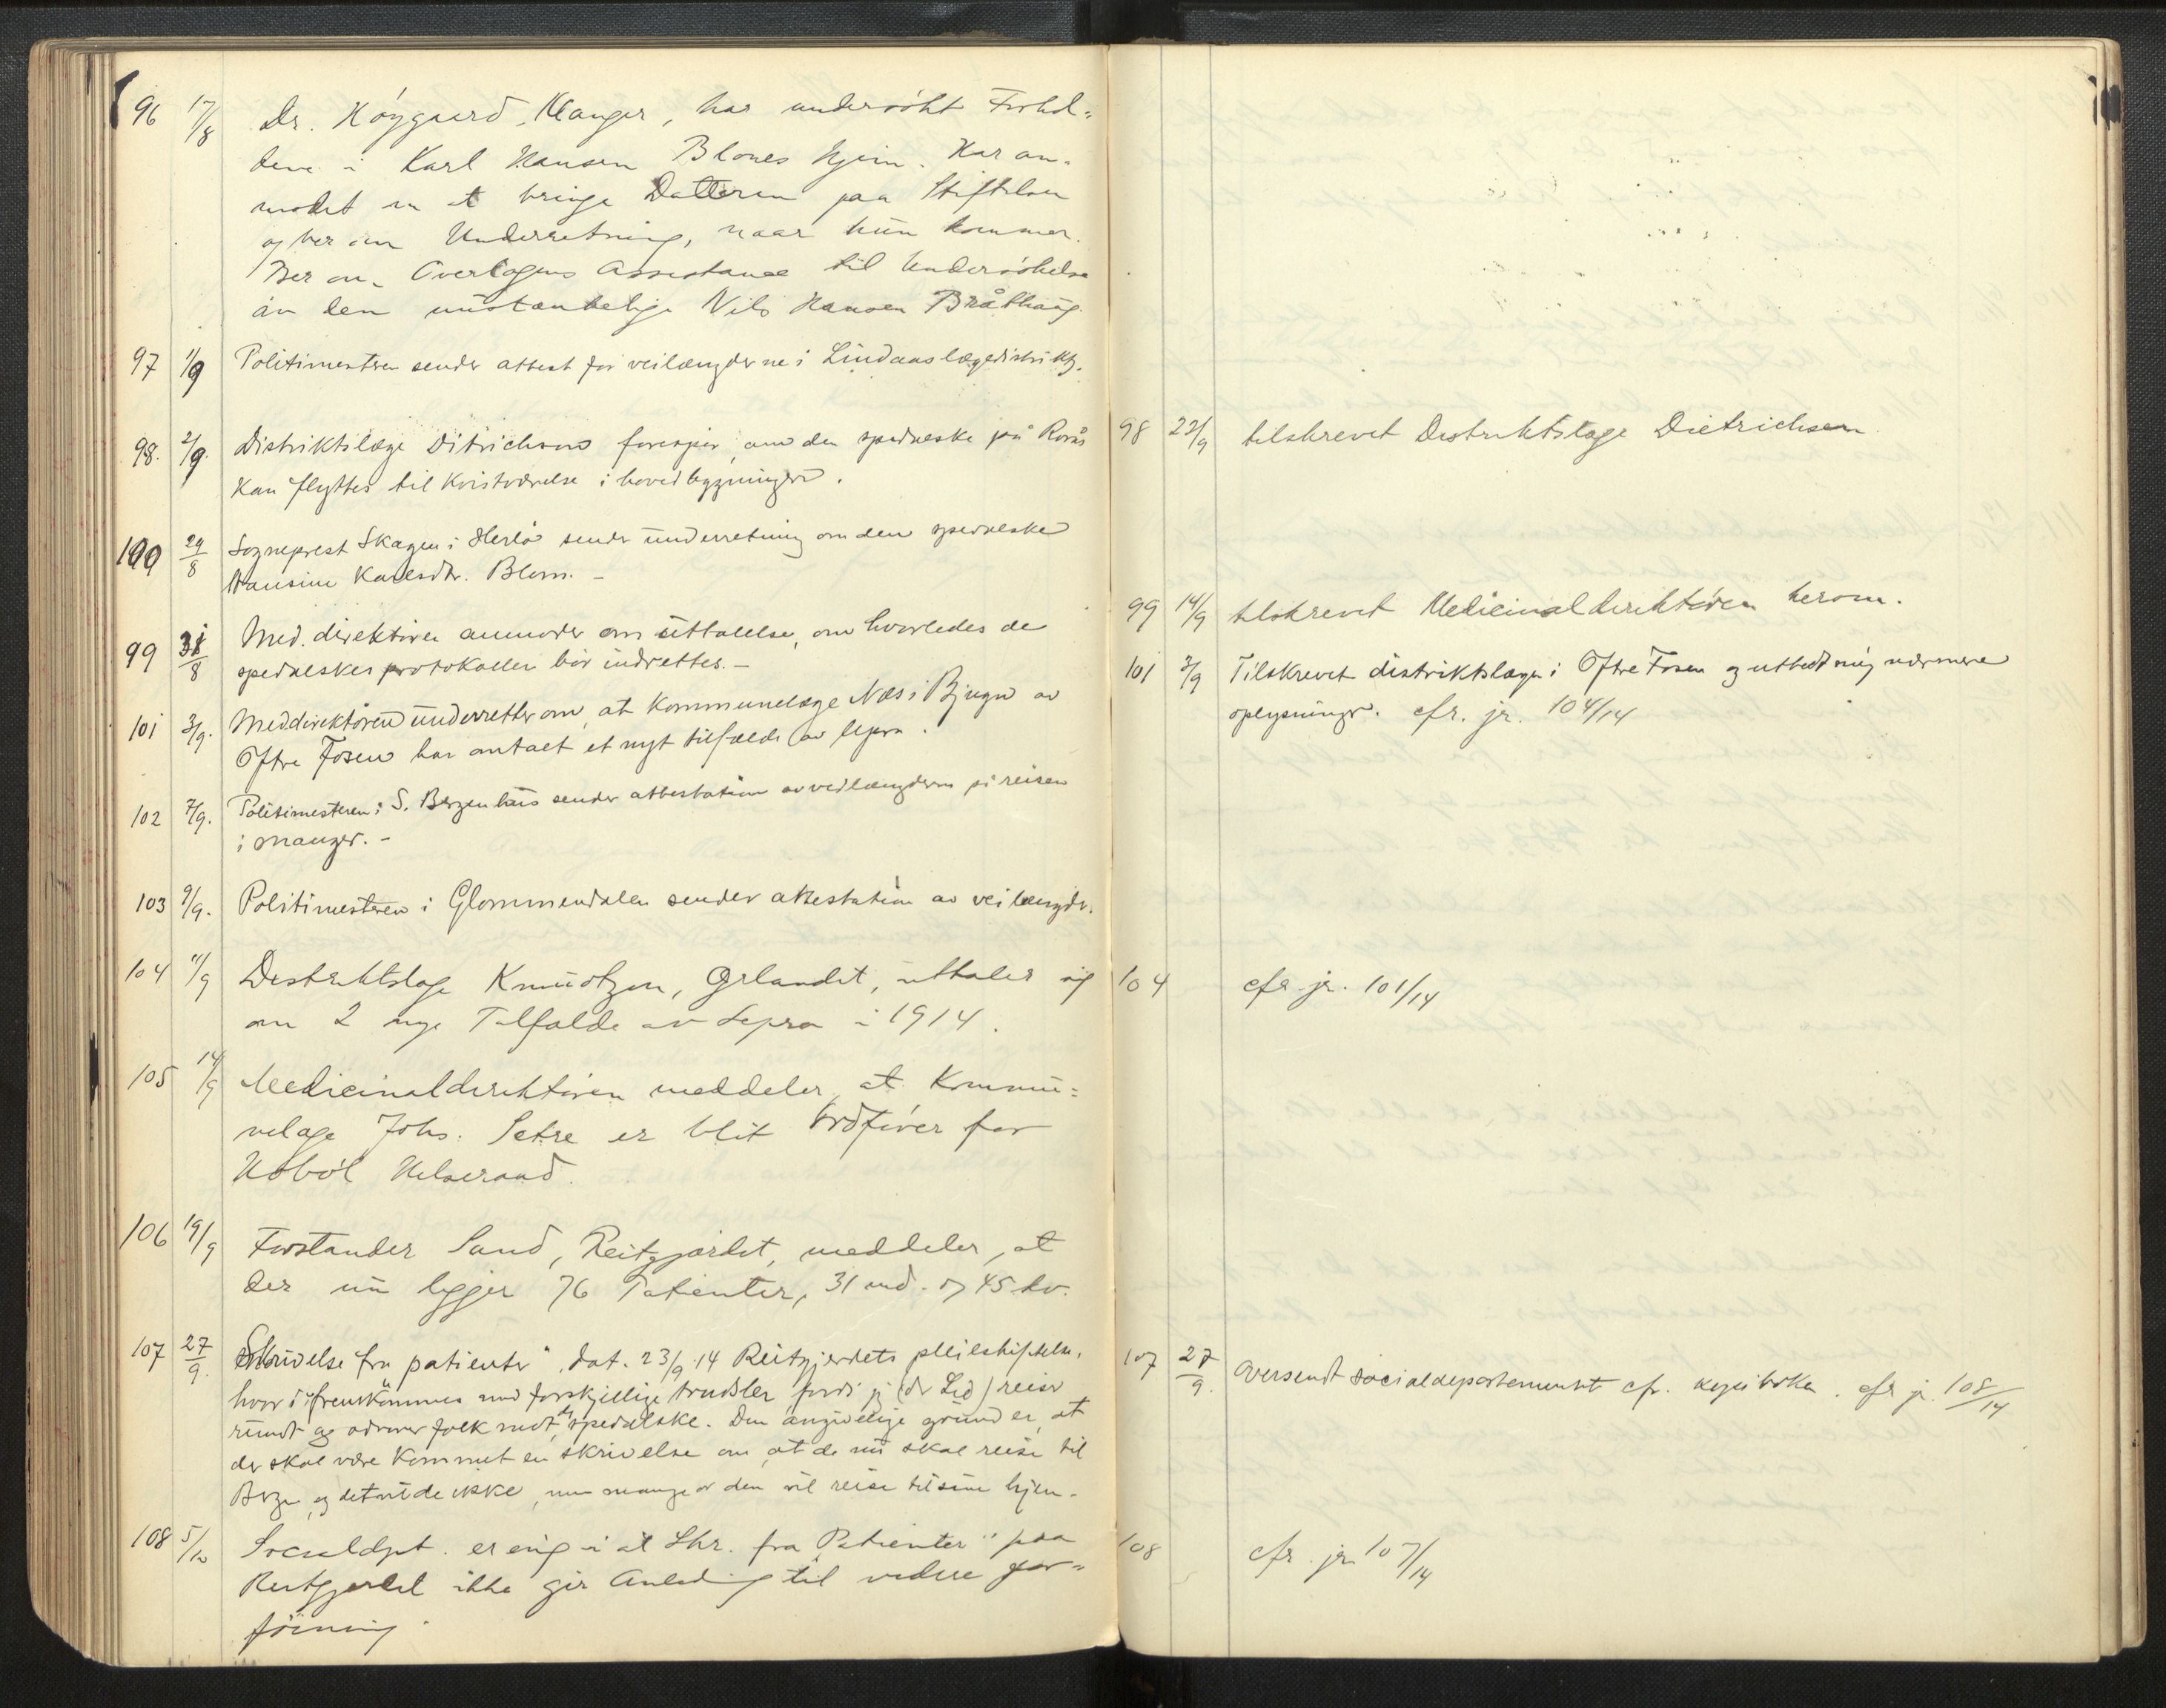 96 17/8 Dr. Høygaard, Manger, har undersökt Forhol-
dene i Karl Hansen Bloms hjem. Har an-
modet om at bringe Datteren paa Stiftelsen
og ber om Underretning, naar hun kommer.
Ber om Overlægens Assistance til Undersökelse
av den mistænkelige Nils Hansen Bråthaug.
97 1/9 Politimesteren sender attest for veilængderne i Lindaas lægedistrikt.
98. 2/9. Distriktslæge Ditrichsen forespør, om den spedalske på Rorås
kan flyttes til kvistværelse i hovedbygningen.
100 29/8 Sogneprest Skagen i Herlö sender underretning om den spedalske
Hansine Karlsdtr. Blom. -
99 31/8 Med. direktören anmoder om uttalelse, om hvorledes de
spedalskes protokoller bör indrettes. -
101 3/9. Meddirektören underretter om, at kommunelæge Næs i Bjugn av
Ö ftre Fosen har antalt et nyt tilfælde av lepra.
102 7/9. Politimesteren i S. Bergenhus sender attestation av veilængderne på reisen
i Manger. -
103 9/9. Politimesteren i Glommendalen sender attestation av veilængde.
104 11/9 Distriktslæge Knudtzon, Ørlandet, uttaler sig
om 2 nye Tilfælde av Lepra i 1914.
105 14/9 Medicinaldirektören meddeler, at Kommu=
nelæge Johs. Setre er blit Ordförer for
Hobøl Helseraad.
106 19/9 Forstander Sand, Reitgjærdet, meddeler, at
der nu ligger 76 Patienter, 31 md. og 45 kv.
107 27/9. Skrivelse "fra patienter", dat. 23/9 14 Reitgjerdets pleiestiftelse,
hvori fremkommes med forskjellige trusler fordi jeg (dr Lid) reiser
rundt og advarer folk mot de spedalske. Den angivelige grund er, at
der skal være kommet en skrivelse om, at de nu skal reise til
Bergen, og det vil de ikke, men mange av dem vil reise til sine hjem.
108 5/10 Socialdept. er enig i at Skr. fra "Patienter" paa
Reitgjerdet ikke gir Anledning til videre for=
föining.
98 22/9 tilskrevet Distriktslæge Dietrichsen.
99 14/9 tilskrevet Medicinaldirektören herom.
101 3/9 Tilskrevet distriktslægen i Öftre Fosen og utbedt mig nærmere
oplysninger. cfr. jr. 104/14
104 cfr. jr. 101/14
107 27/9. Oversendt socialdepartementet cfr. kopiboken. cfr jr. 108/14
108 cfr. jr. 107/14